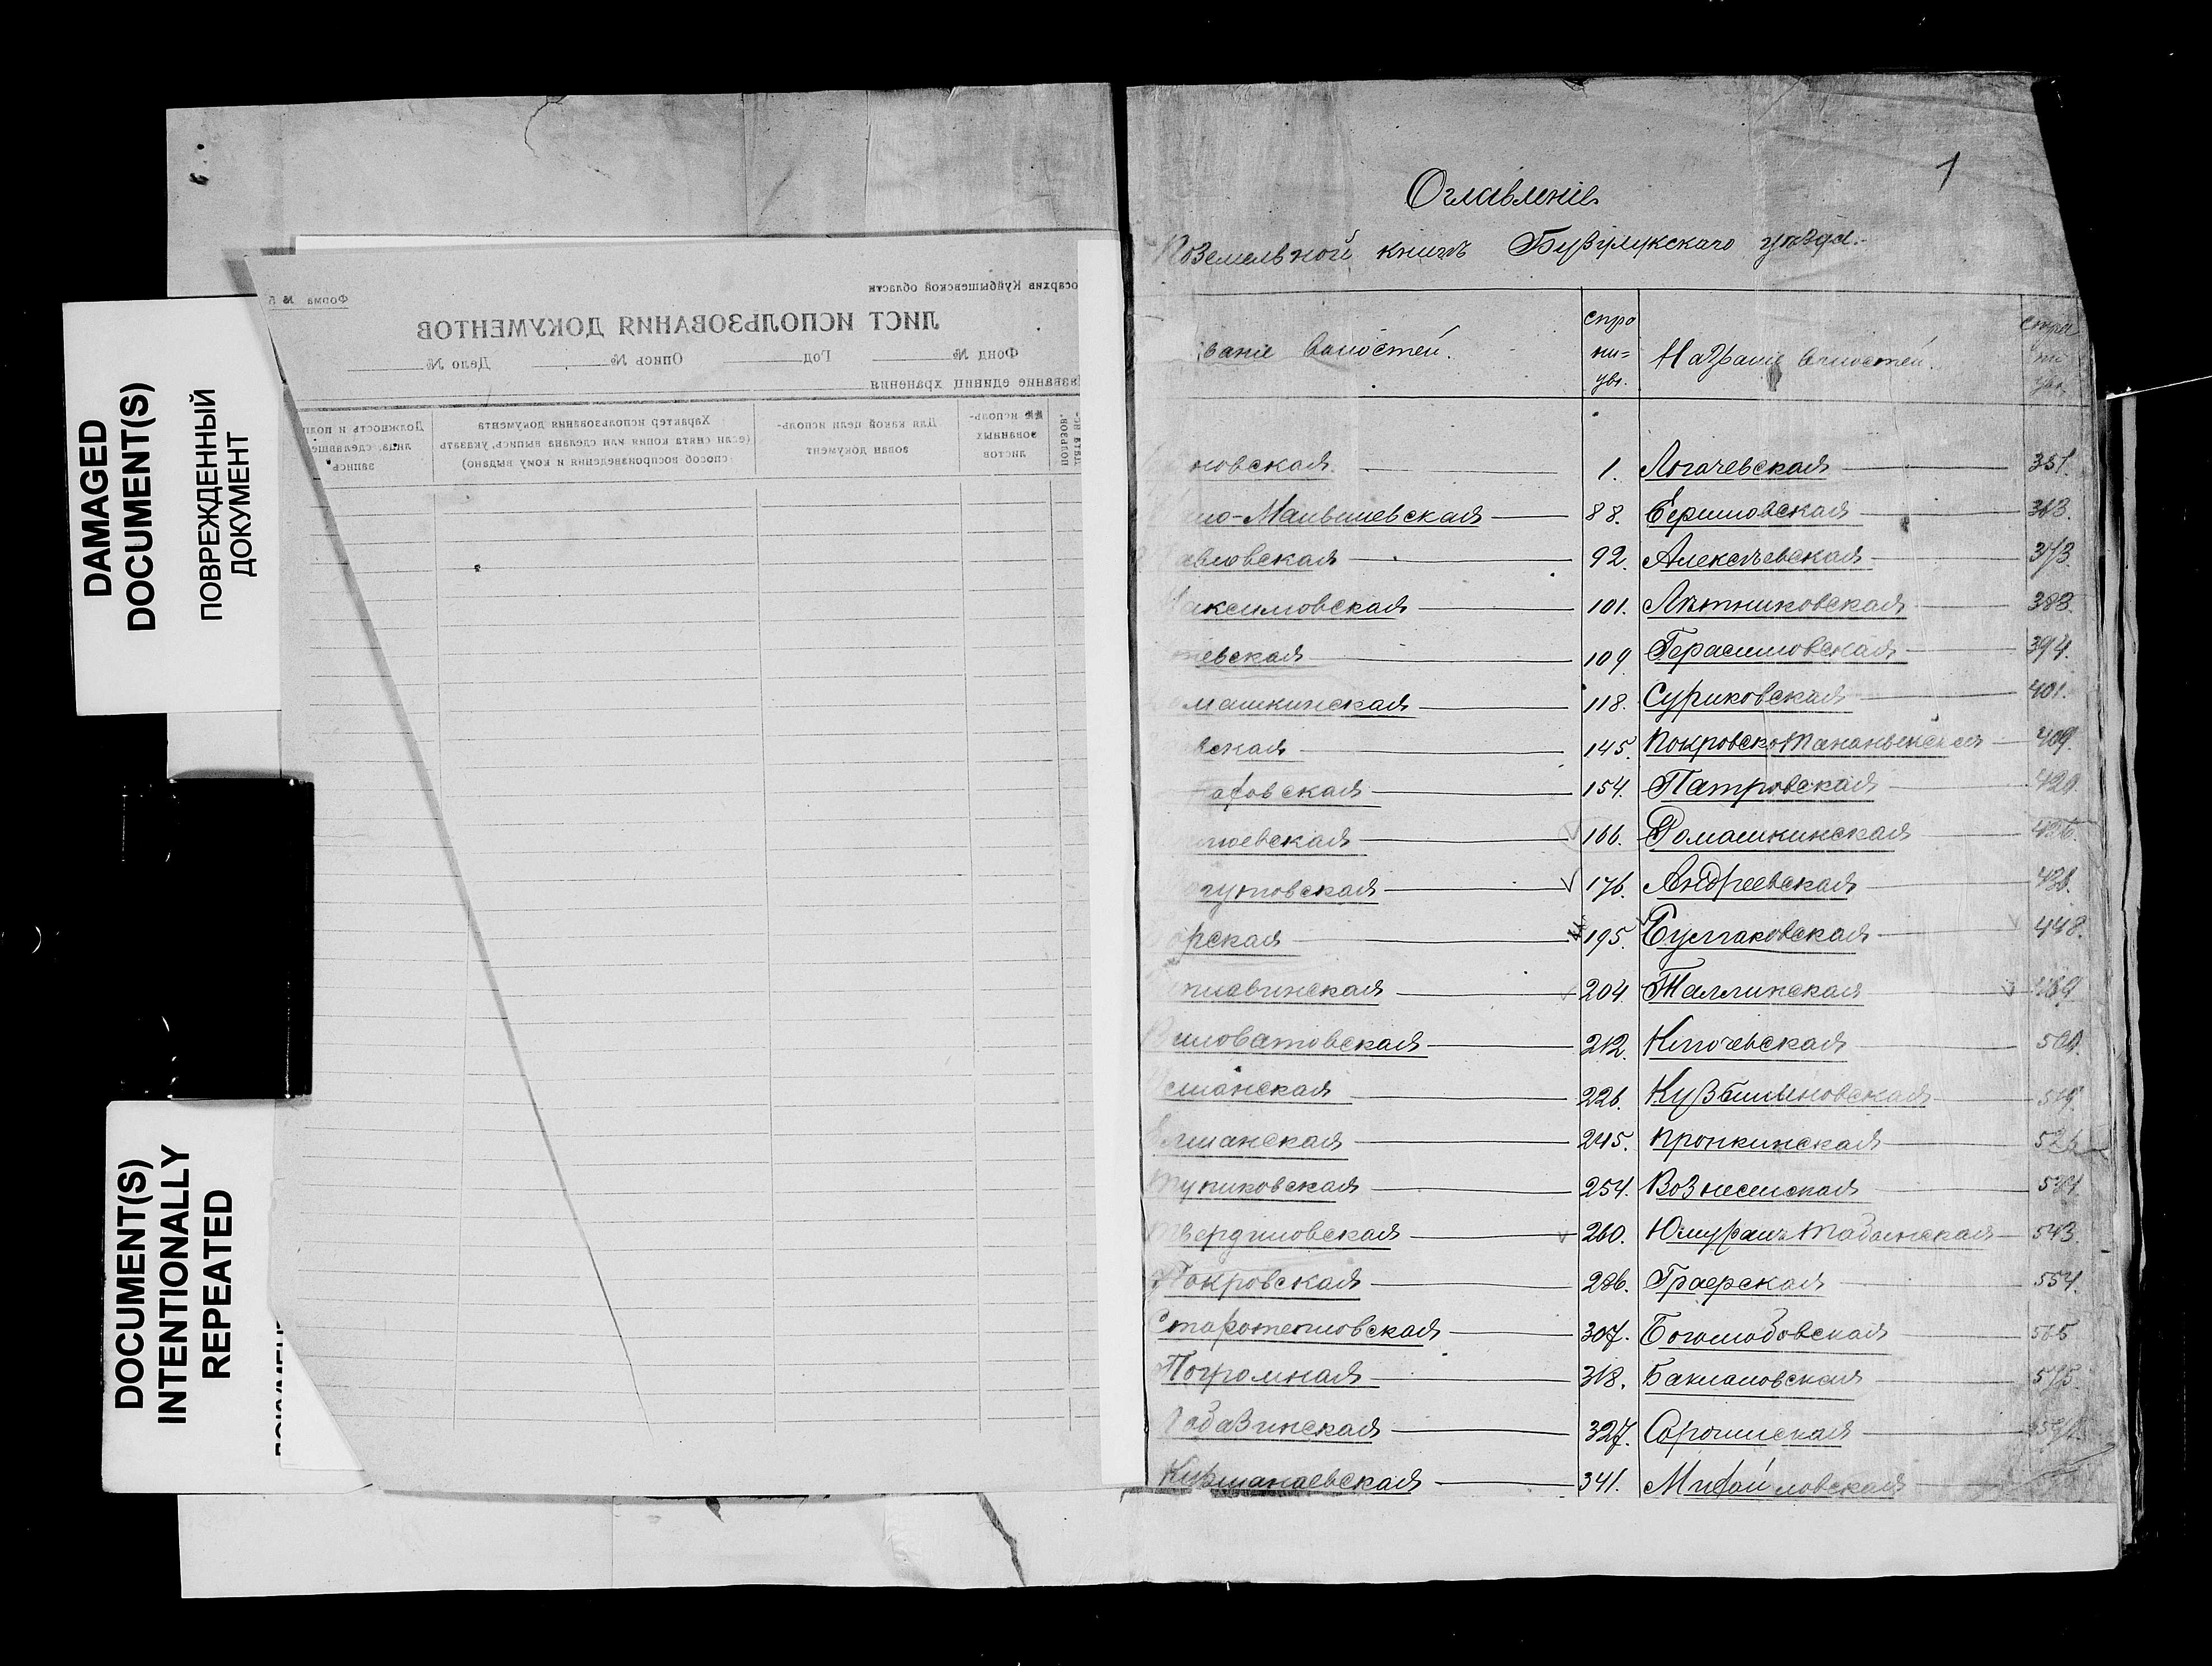 DAMAGED
DOCUMENT(S)
ПОВРЕЖДЕННЫЙ
ДОКУМЕНТ
DOCUMENT(S)
INTENTIONALLY
REPEATED
Форма №
осархив Куйбышевской области
ЛИСТ ИСПОЛЬЗОВАНИЯ ДОКУМЕНТОВ
Фонд № Год Опись № Дело №
азвание единиц хранения
исполь-
зованных
листов
Для какой цели исполь-
зован документ
Характер использования документа
(если снята копия или сделана выпись, указать
способ воспроизведения и кому выдано)
Должность и подп
лица, сделавше
запись
1
Оглавленіе
Поземельной книгѣ Бузулукскаго уѣзда.
ваніе Волостей. стра ни= цы. Названіе Волостей. стра ни цы
новская 1. Логачевская 351.
но-Мальшевская 88. Ершовская 363.
авловская 92. Алексѣевская 373.
аксимовская 101. Лѣтниковская 383.
евская 109 Герасимовская 394.
машкинская 118. Суриковская 401.
вская 145. Покровско Тананыкская 409.
фовская 154. Патровская 420.
евская 166. Ромашкинская
гутовская 176. Андреевская 436.
орская 195. Булгаковская 448.
плавинская 204. Таллинская 489.
иловатовская 212. Ключевская
сманская 226. Кузьминовская 519.
лшанская 245. Пронкинская 526.
Тупиковская 254. Вознесенская
Твердиловская 260. Юмуранъ Табынская 543.
Покровская 286. Грачевская 554.
Старотепловская 307. Боголюбовская 565.
Погромная 318. Баклановская 575.
Лабазинская 327. Сорочинская
Курманаевская 341. Михайловская